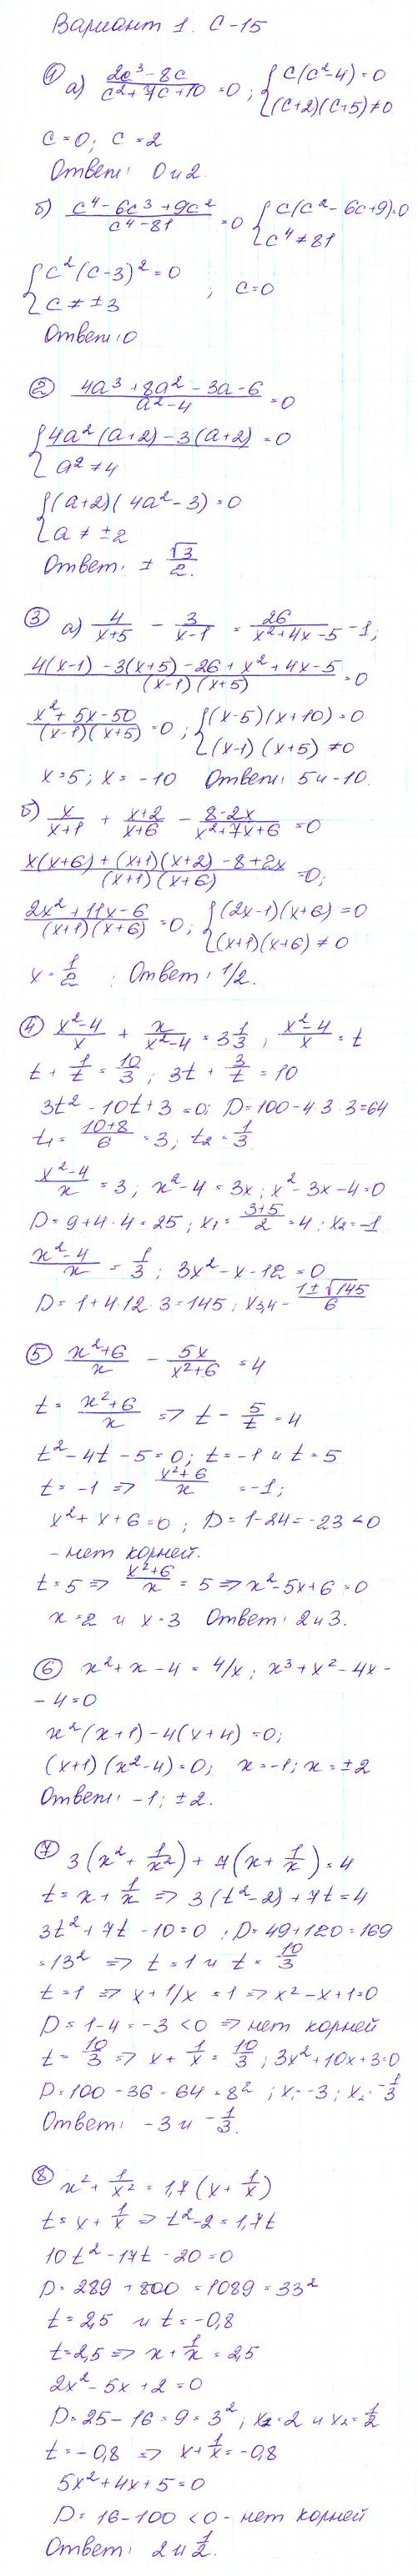 Вариант 1. С-15
① а) (2c³-8c)/(c²+7c+10) = 0 ; { c(c²-4) = 0
{ (c+2)(c+5) ≠ 0
c = 0; c = 2
Ответ: 0 и 2.
б) (c⁴-6c³+9c²)/(c⁴-81) = 0 { c(c²-6c+9)=0
{ c⁴ ≠ 81
{ c²(c-3)² = 0
{ c ≠ ±3 ; c = 0
Ответ: 0
② (4a³+8a²-3a-6)/(a²-4) = 0
{ 4a²(a+2)-3(a+2) = 0
{ a² ≠ 4
{ (a+2)(4a²-3) = 0
{ a ≠ ±2
Ответ: ± √3/2.
③ а) 4/(x+5) - 3/(x-1) = 26/(x²+4x-5) - 1;
(4(x-1)-3(x+5)-26+x²+4x-5)/((x-1)(x+5)) = 0
(x²+5x-50)/((x-1)(x+5)) = 0 ; { (x-5)(x+10) = 0
{ (x-1)(x+5) ≠ 0
x = 5; x = -10 Ответ: 5 и -10.
б) x/(x+1) + (x+2)/(x+6) - (8-2x)/(x²+7x+6) = 0
(x(x+6)+(x+1)(x+2)-8+2x)/((x+1)(x+6)) = 0;
(2x²+11x-6)/((x+1)(x+6)) = 0; { (2x-1)(x+6) = 0
{ (x+1)(x+6) ≠ 0
x = 1/2 ; Ответ: 1/2.
④ (x²-4)/x + x/(x²-4) = 3 1/3 ; (x²-4)/x = t
t + 1/t = 10/3 ; 3t + 3/t = 10
3t²-10t+3 = 0; D=100-4·3·3=64
t₁ = (10+8)/6 = 3; t₂ = 1/3
(x²-4)/x = 3; x²-4 = 3x; x²-3x-4=0
D = 9+4·4 = 25; x₁ = (3+5)/2 = 4; x₂ = -1
(x²-4)/x = 1/3 ; 3x²-x-12 = 0
D = 1+4·12·3=145; x₃,₄ = (1±√145)/6
⑤ (x²+6)/x - 5x/(x²+6) = 4
t = (x²+6)/x => t - 5/t = 4
t²-4t-5=0; t=-1 и t=5
t = -1 => (x²+6)/x = -1;
x²+x+6=0 ; D=1-24=-23<0
- нет корней.
t = 5 => (x²+6)/x = 5 => x²-5x+6=0
x = 2 и x=3 Ответ: 2 и 3.
⑥ x²+x-4 = 4/x; x³+x²-4x-
-4=0
x²(x+1)-4(x+4) = 0;
(x+1)(x²-4)=0; x=-1; x=±2
Ответ: -1; ±2.
⑦ 3(x²+1/x²)+7(x+1/x)=4
t = x+1/x => 3(t²-2)+7t=4
3t²+7t-10=0 ; D=49+120=169
=13² => t=1 и t=10/3
t=1 => x+1/x=1 => x²-x+1=0
D = 1-4=-3 <0 => нет корней
t = 10/3 => x+1/x = 10/3 ; 3x²+10x+3=0
D=100-36=64=8² ; x₁=-3; x₂=-1/3
Ответ: -3 и -1/3.
⑧ x²+1/x² = 1,7(x+1/x)
t = x+1/x => t²-2=1,7t
10t²-17t-20=0
D=289+800=1089=33²
t=2,5 и t=-0,8
t=2,5 => x+1/x=2,5
2x²-5x+2=0
D=25-16=9=3²; x₁=2 и x₂=1/2
t=-0,8 => x+1/x=-0,8
5x²+4x+5=0
D=16-100<0 - нет корней
Ответ: 2 и 1/2.